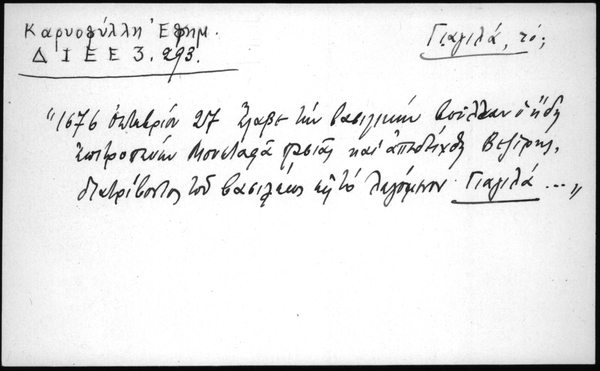 Καρυοφύλλη Ἐφημ.
Δ Ι Ε Ε 3. 293.
Γιαγιλά, τό;
"1676 ὀκτωβρίου 27 ἔλαβε τὴν βασιλικὴν βούλλαν ὁ ἤδη
ἐπιτροπεύων Μουσταφᾶ πασιᾶς καὶ ἀπεδείχθη Βεζίρης,
διατρίβοντος τοῦ βασιλέως εἰς τὸ λεγόμενον Γιαγιλά ..."